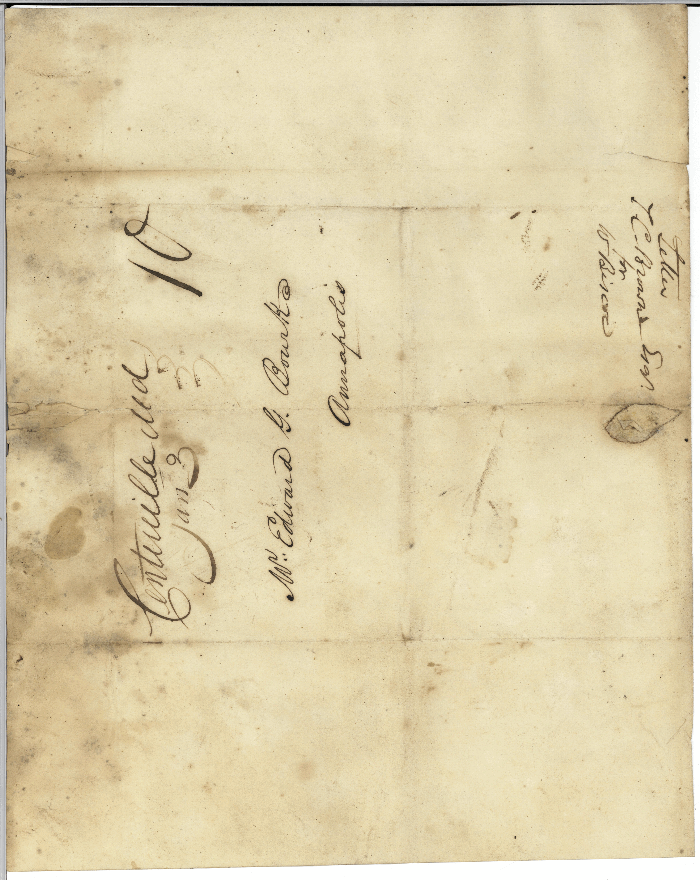 Centreville Md
Jan 3
10
Mr. Edward G. Bourke
Annapolis
Letter
T C Browne Esqr.
for